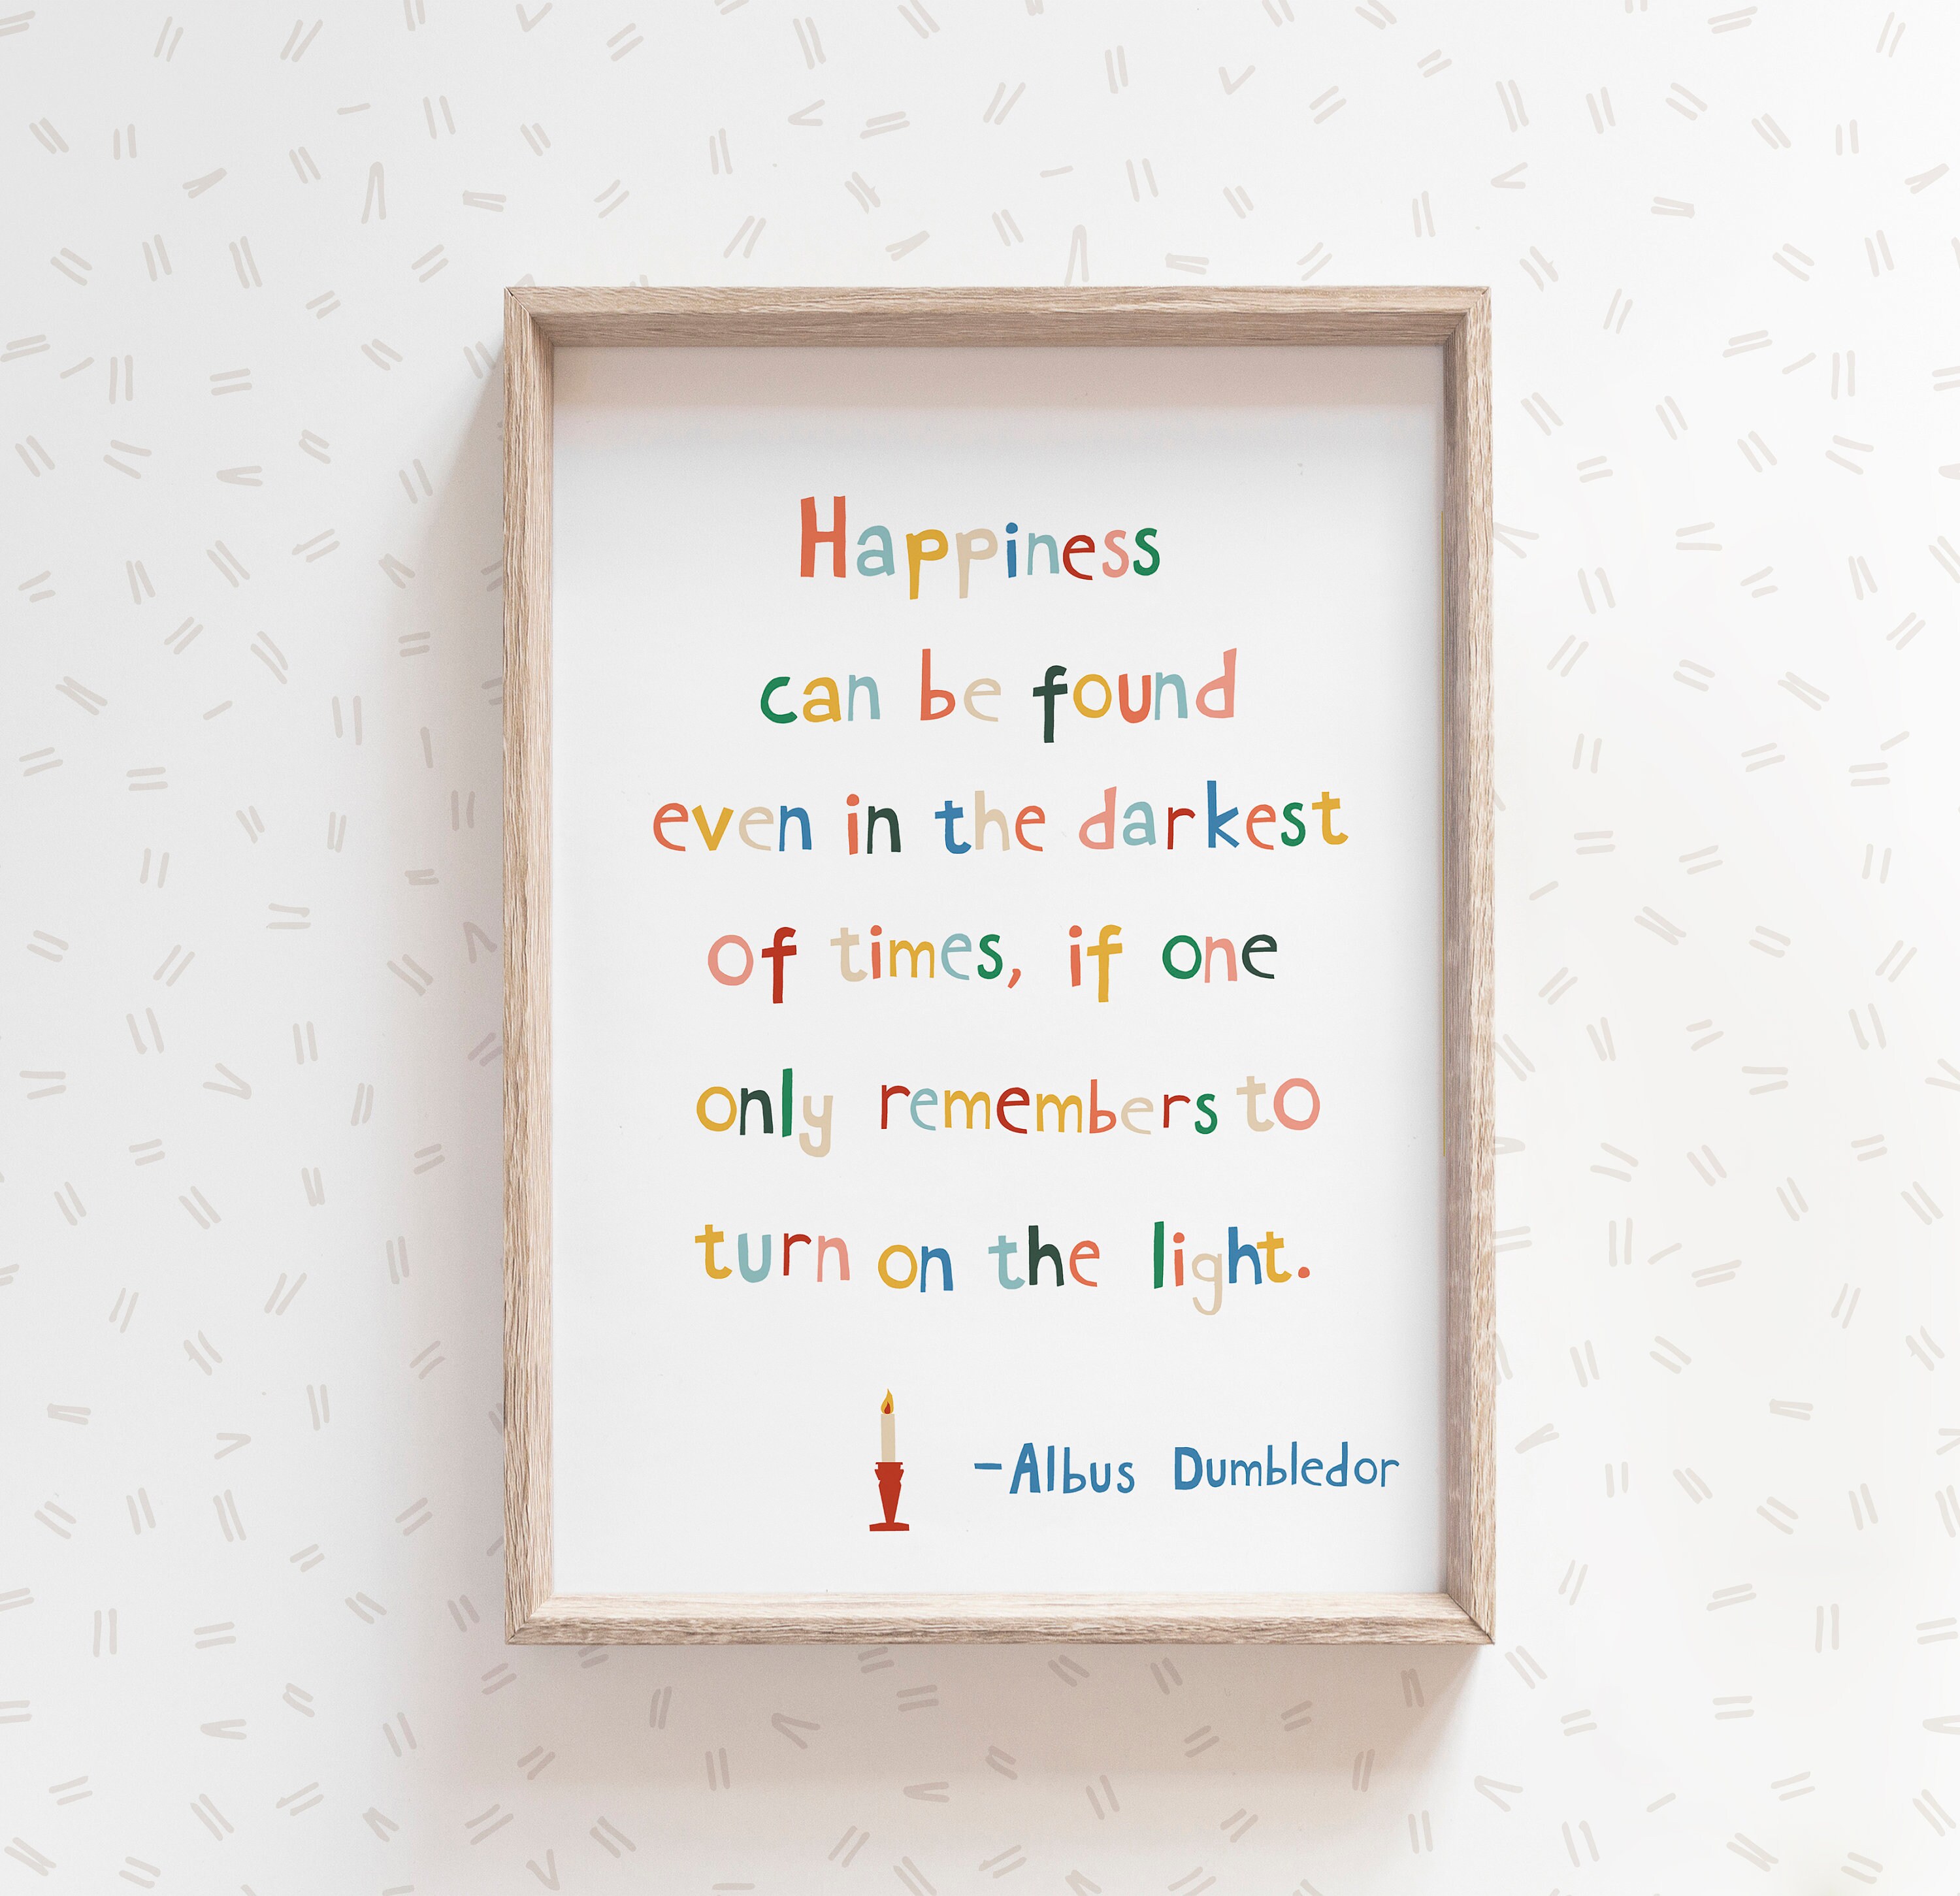 Happiness
can be found
even in the darkest
of times, if one
only remembers to
turn on the light.
-Albus Dumbledor